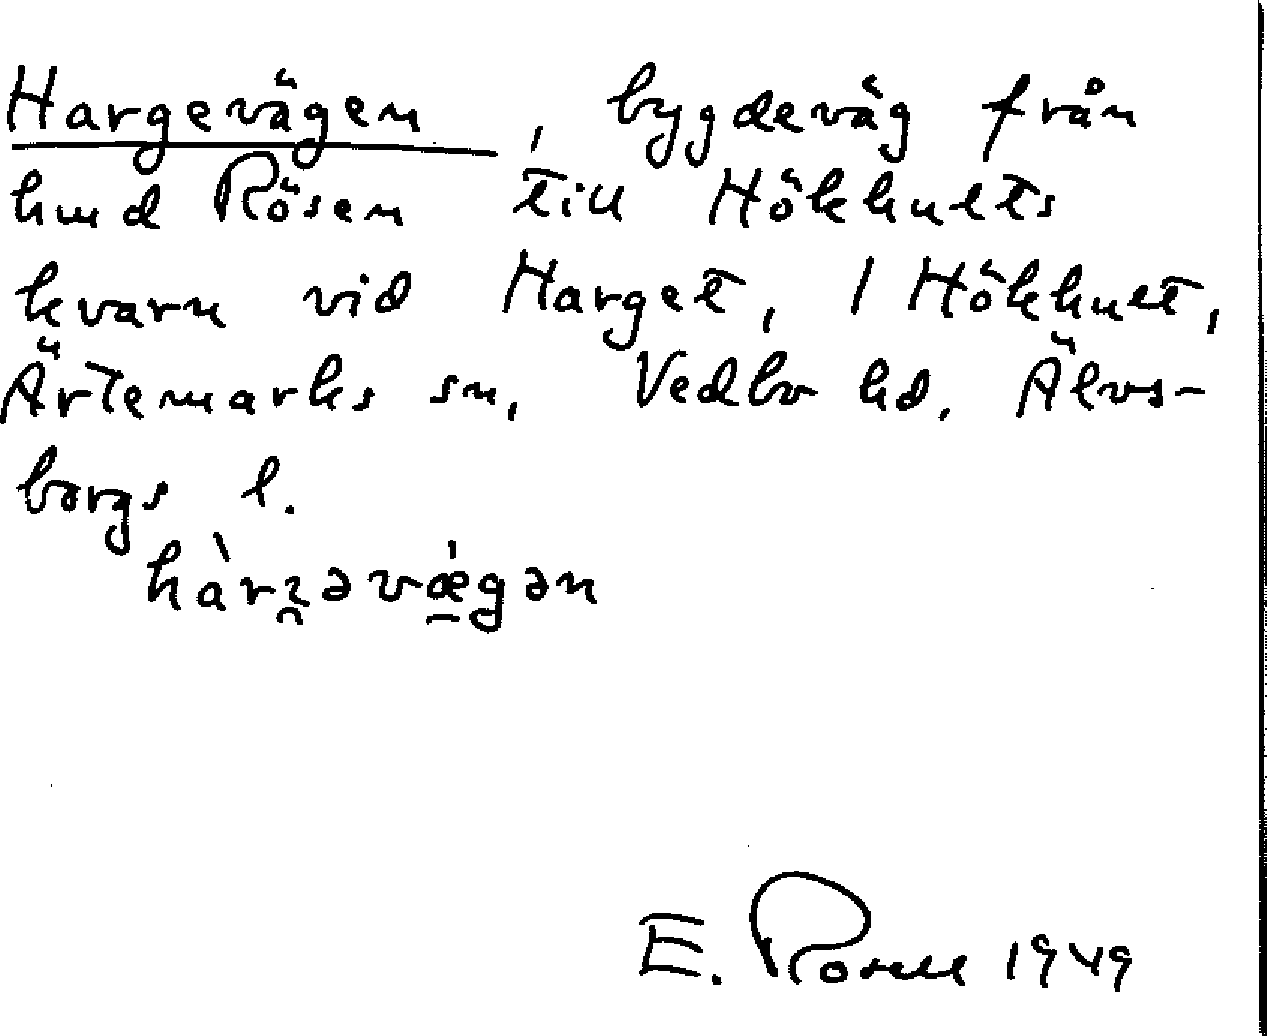 Hargevägen, bygdeväg från
lund Rösen till Hökhults
kvarn vid Harget, / Hökhult,
Ärtemarks sn, Vedbo hd. Älvs-
borgs l.
E. Rosell 1949